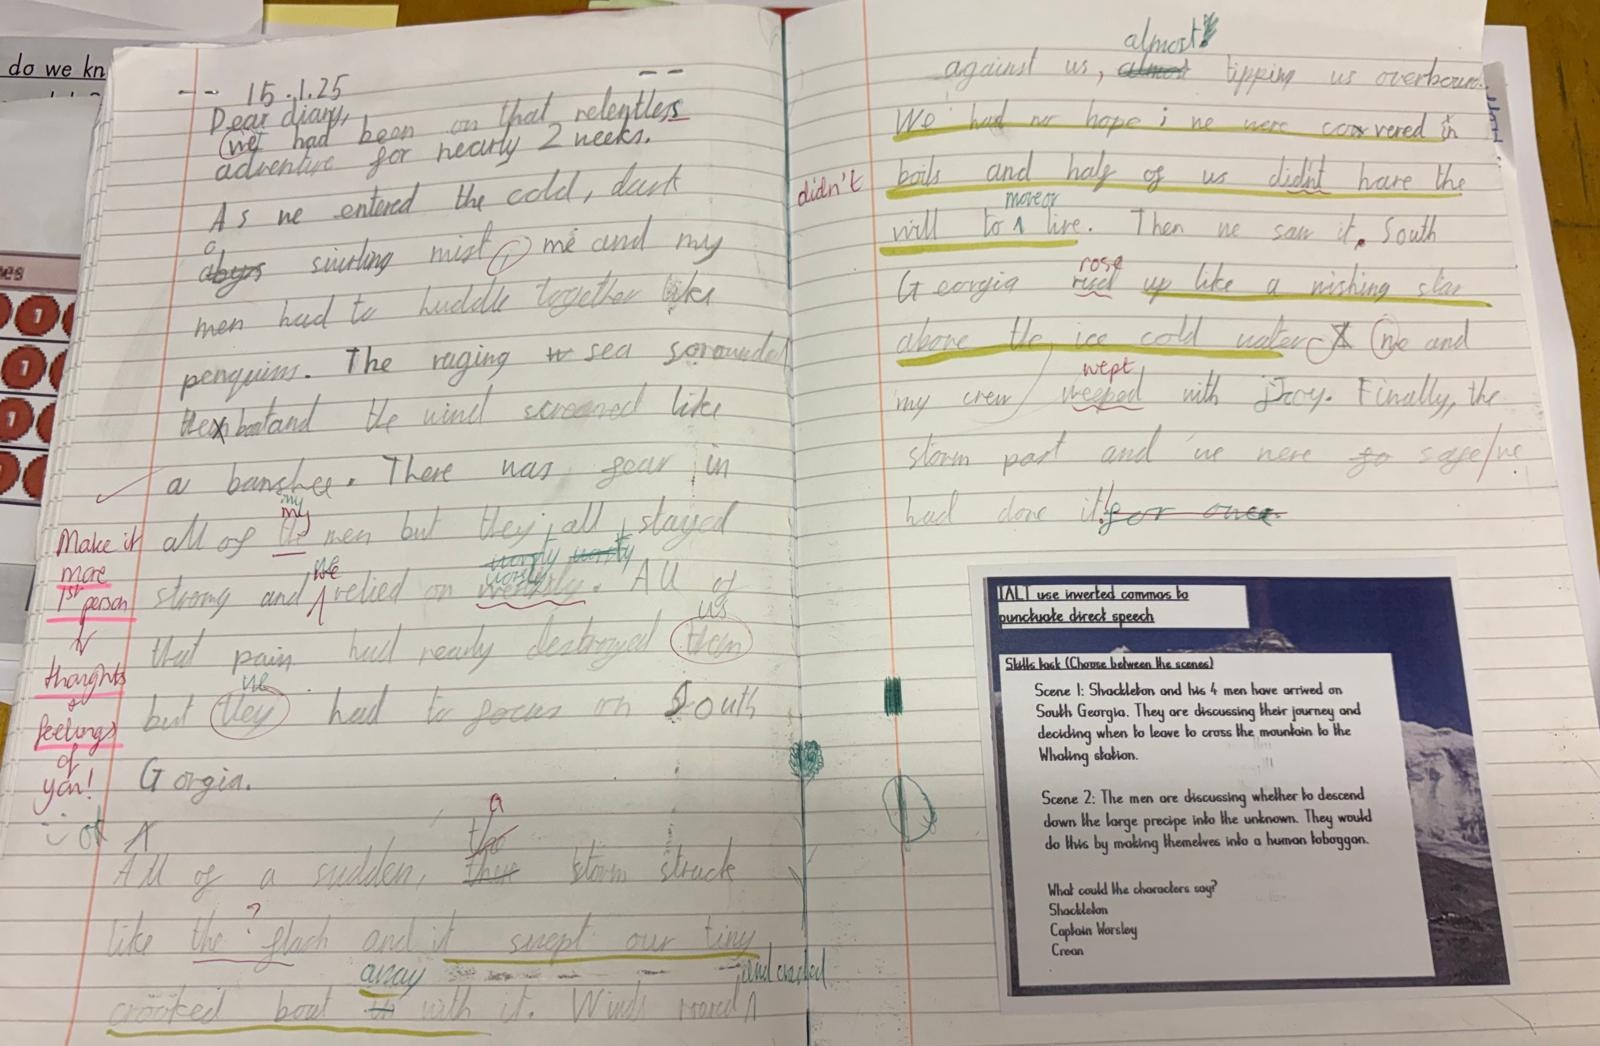 do we kn
15.1.25
Dear diary,
we had been on that relentless
adventure for nearly 2 weeks.
As we entered the cold, dark
a
abyss swirling mist, me and my
men had to huddle together like
penguins. The raging sea sorounded
the boat and the wind screamed like
a banshee. There was fear in
my
my
all of the men but they, all, stayed
we
strong and relied on
worsly
All of
us
that pain had nearly destroyed them
we
but they had to focus on South
Gorgia.
Make it
more
1st person
thoughts
&
feelings
of
you!
of
a
the
All of a sudden, storm struck
?
like the flach and it swept our tiny
away
and crashed
crooked boat with it. Winds roared
almost!
against us, almost tipping us overboard.
We had no hope; we were covered in
didn't
boils and half of us didn't have the
move or
will to live. Then we saw it. South
rose
Georgia up like a wishing star
above the ice cold water we and
wept
my crew weeped with joy. Finally, the
storm past and we were safe/we
had done it! for once.
IALT use inverted commas to
punctuate direct speech
Skills task (Choose between the scenes)
Scene 1: Shackleton and his 4 men have arrived on
South Georgia. They are discussing their journey and
deciding when to leave to cross the mountain to the
Whaling station.
Scene 2: The men are discussing whether to descend
down the large precipe into the unknown. They would
do this by making themelves into a human toboggan.
What could the characters say?
Shackleton
Captain Worsley
Crean